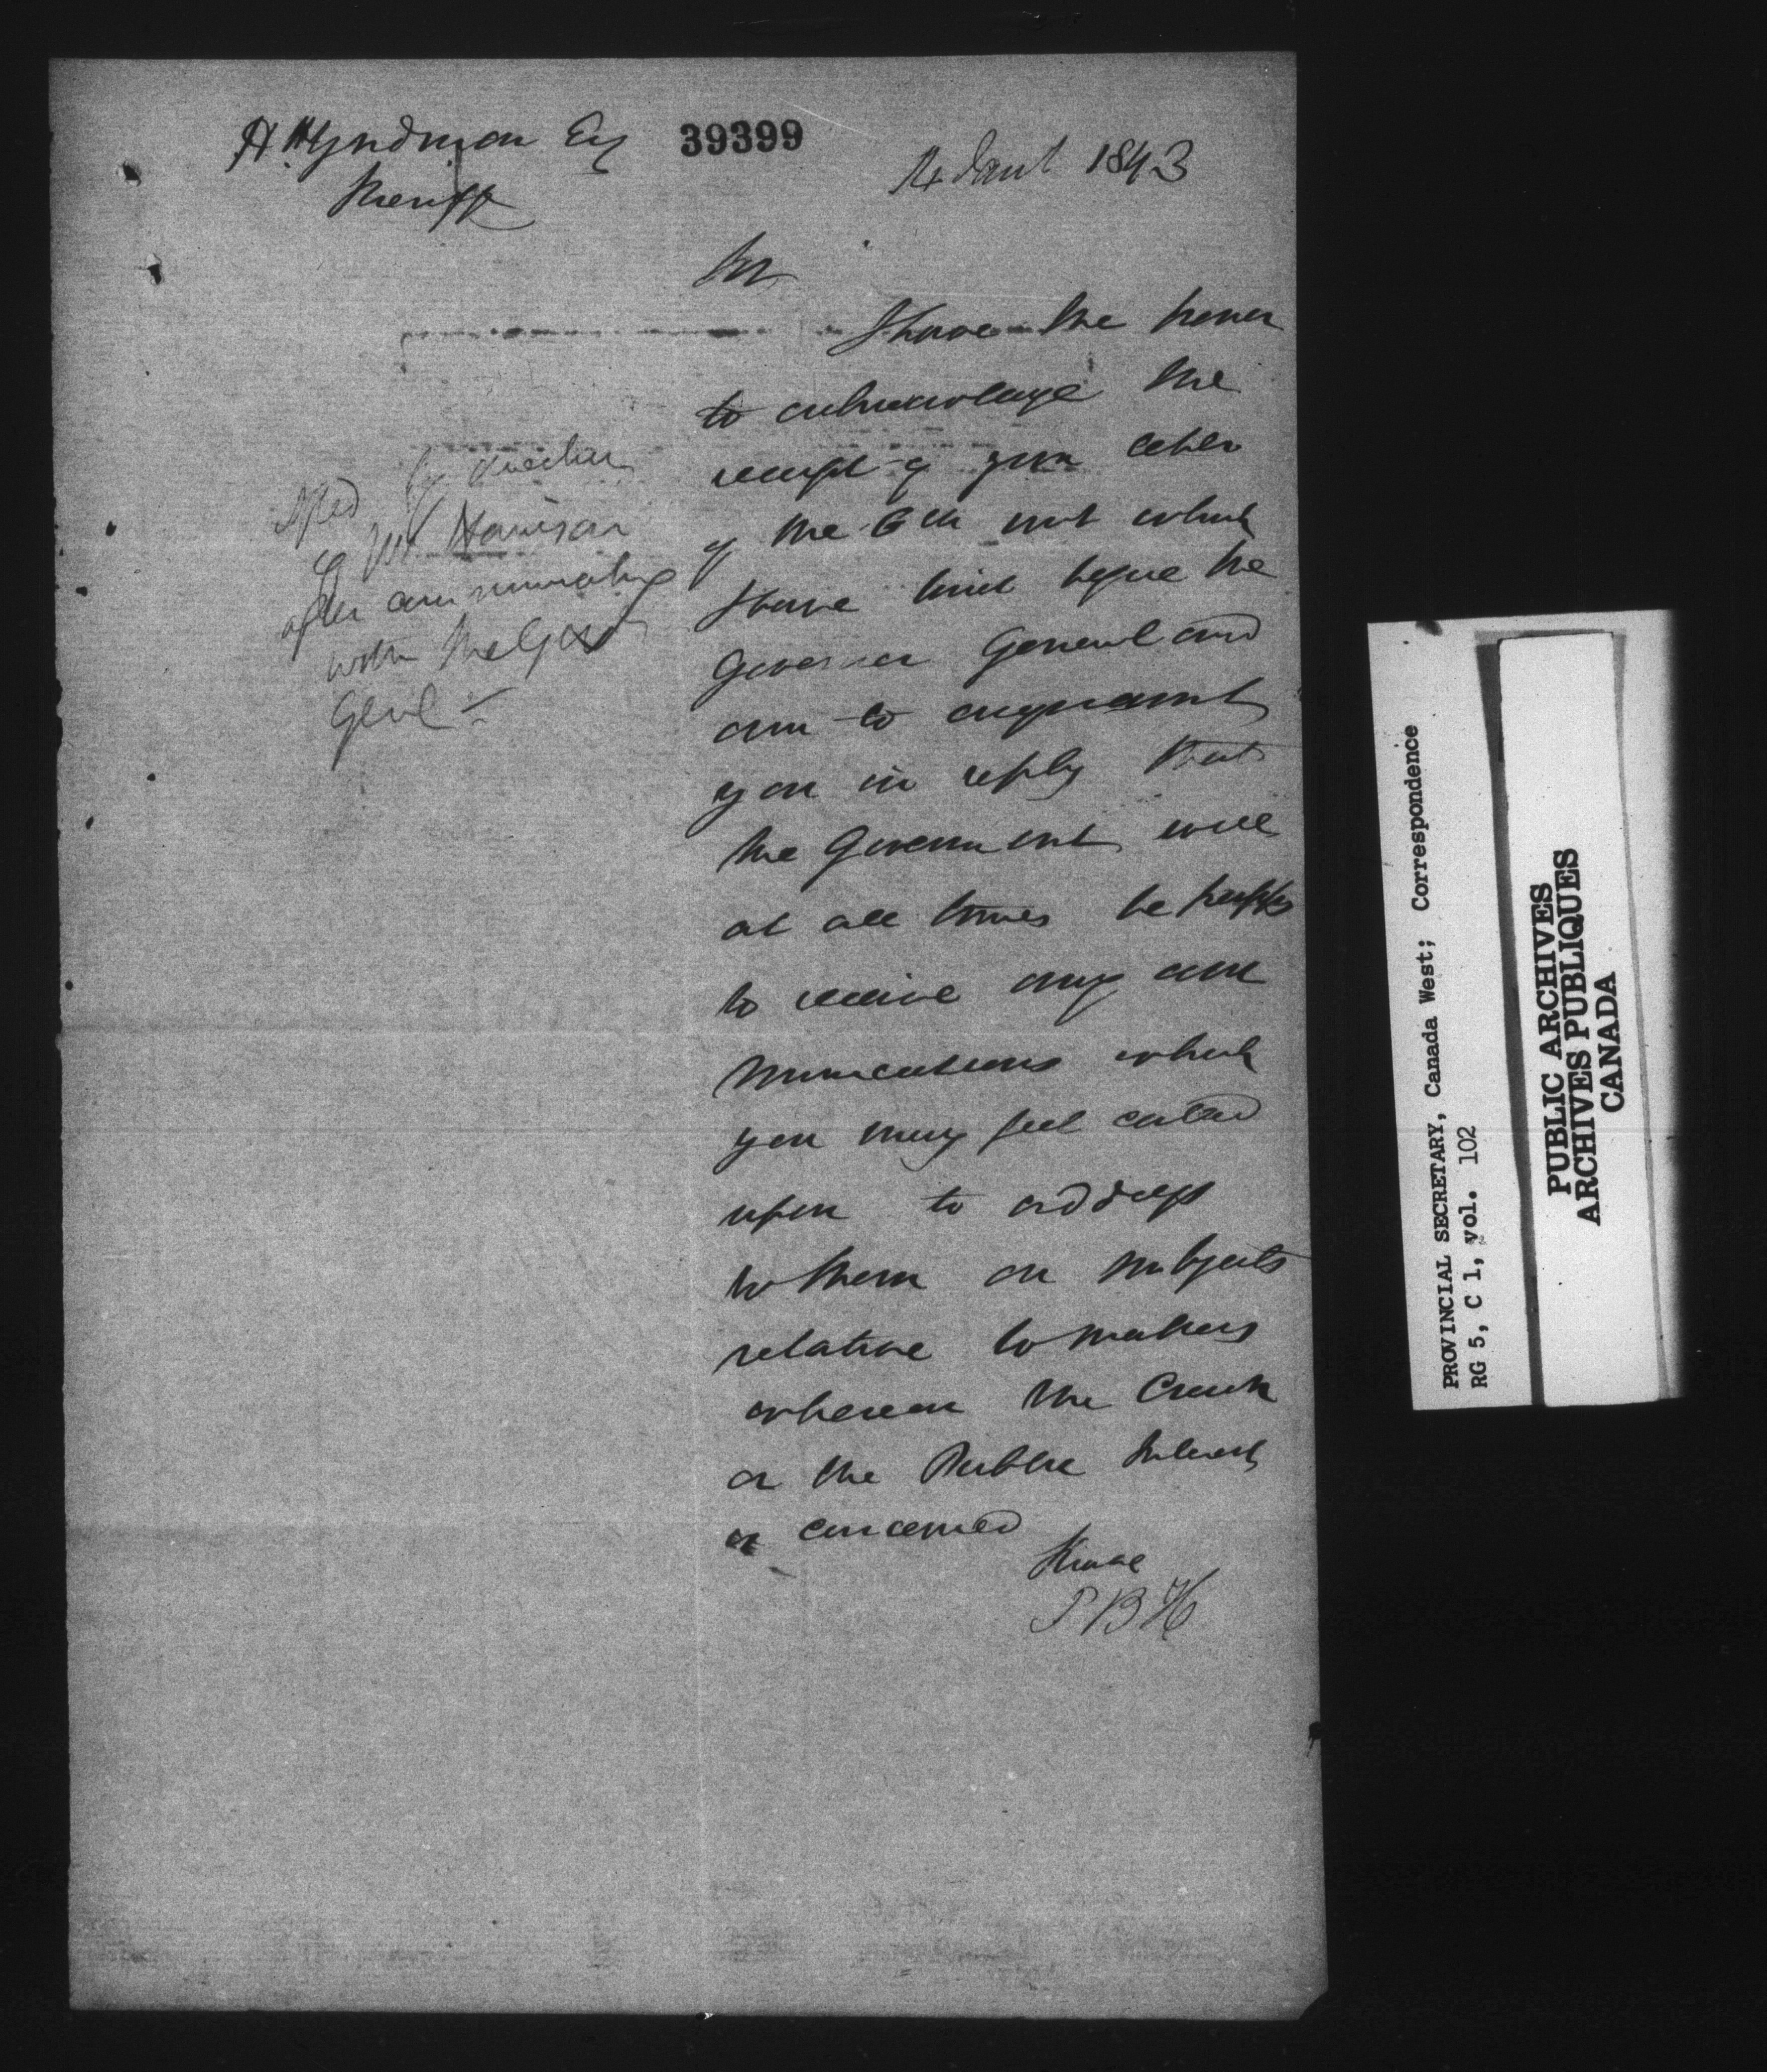 H Hyndman Esq
Sheriff
39399
14 Jany 1843
Sir
I have the honor
to acknowledge the
receipt of your letter
of the 6th inst which
I have laid before the
Governor General and
am to acquaint
you in reply that
the Government will
at all times be happy
to receive any com
munications which
you may feel called
upon to address
to them on subjects
relative to matters
wherein the Crown
or the Public Interest
is concerned
I have
S B H
by direction
of Mr Harrison
after communicating
with the Govr
Genl
PROVINCIAL SECRETARY, Canada West; Correspondence
RG 5, C 1, vol. 102
PUBLIC ARCHIVES
ARCHIVES PUBLIQUES
CANADA